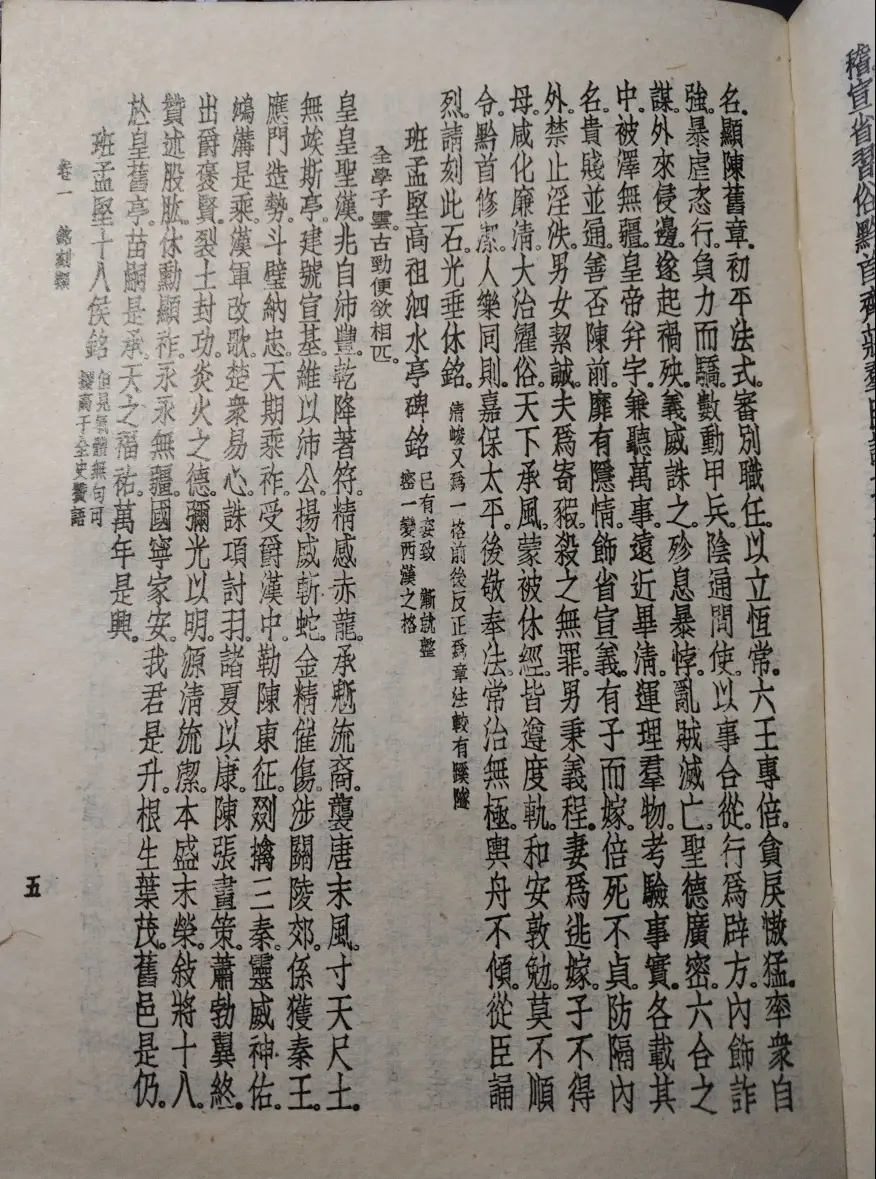 稽宣省習俗黔首齊莊羣臣
名。顯陳舊章。初平法式。審別職任。以立恆常。六王專倍。貪戾慠猛。率衆自
強。暴虐恣行。負力而驕。數動甲兵。陰通間使。以事合從。行爲辟方。內飾詐
謀。外來侵邊。遂起禍殃。義威誅之。殄息暴悖。亂賊滅亡。聖德廣密。六合之
中。被澤無疆。皇帝幷宇。兼聽萬事。遠近畢淸。運理羣物。考驗事實。各載其
名。貴賤並通。善否陳前。靡有隱情。飾省宣義。有子而嫁。倍死不貞。防隔內
外。禁止淫泆。男女絜誠。夫爲寄豭。殺之無罪。男秉義程。妻爲逃嫁。子不得
母。咸化廉淸。大治濯俗。天下承風。蒙被休經。皆遵度軌。和安敦勉。莫不順
令。黔首修潔。人樂同則。嘉保太平。後敬奉法。常治無極。輿舟不傾。從臣誦
烈。請刻此石。光垂休銘。淸峻又爲一格前後反正爲章法較有蹊隧
班孟堅高祖泗水亭碑銘 已有姿致 漸就整密一變西漢之格
全學子雲古勁便欲相匹。
皇皇聖漢。兆自沛豐。乾降著符。精感赤龍。承魁流裔。襲唐末風。寸天尺土。
無竢斯亭。建號宣基。維以沛公。揚威斬蛇。金精摧傷。涉關陵郊。係獲秦王。
應門造勢。斗璧納忠。天期乘祚。受爵漢中。勒陳東征。剟擒三秦。靈威神佑。
鴻溝是乘。漢軍改歌。楚衆易心。誅項討羽。諸夏以康。陳張畫策。蕭勃翼終。
出爵褒賢。裂土封功。炎火之德。彌光以明。源淸流潔。本盛末榮。敍將十八。
贊述股肱。休勳顯祚。永永無疆。國寧家安。我君是升。根生葉茂。舊邑是仍。
於皇舊亭。苗嗣是承。天之福祐。萬年是興。
班孟堅十八侯銘 但見氣體無句可擬高于全史贊語
卷一 銘刻類
五